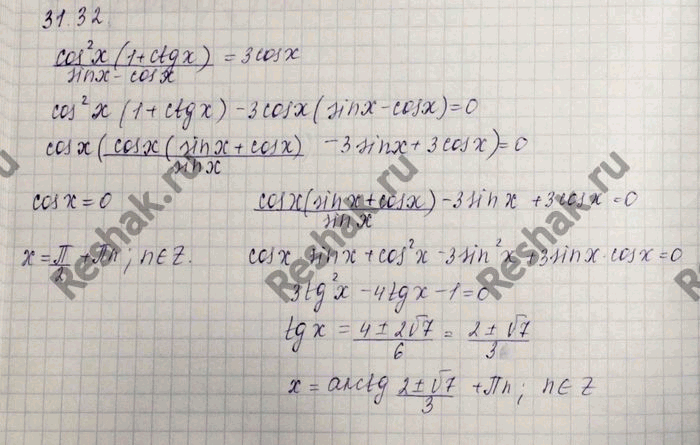 31.32.
cos²x(1+ctgx)/(sinx-cosx) = 3cosx
cos²x(1+ctgx)-3cosx(sinx-cosx)=0
cosx(cosx(sinx+cosx)/sinx -3sinx+3cosx)=0
cosx=0    cosx(sinx+cosx)/sinx -3sinx+3cosx=0
x=π/2+πn; n∈Z.    cosx sinx+cos²x-3sin²x+3sinx·cosx=0
3tg²x-4tgx-1=0
tgx = (4±2√7)/6 = (2±√7)/3
x=arctg (2±√7)/3 +πn; n∈Z
Reshak.ru
Reshak.ru
Reshak.ru
Reshak.ru
Reshak.ru
Reshak.ru